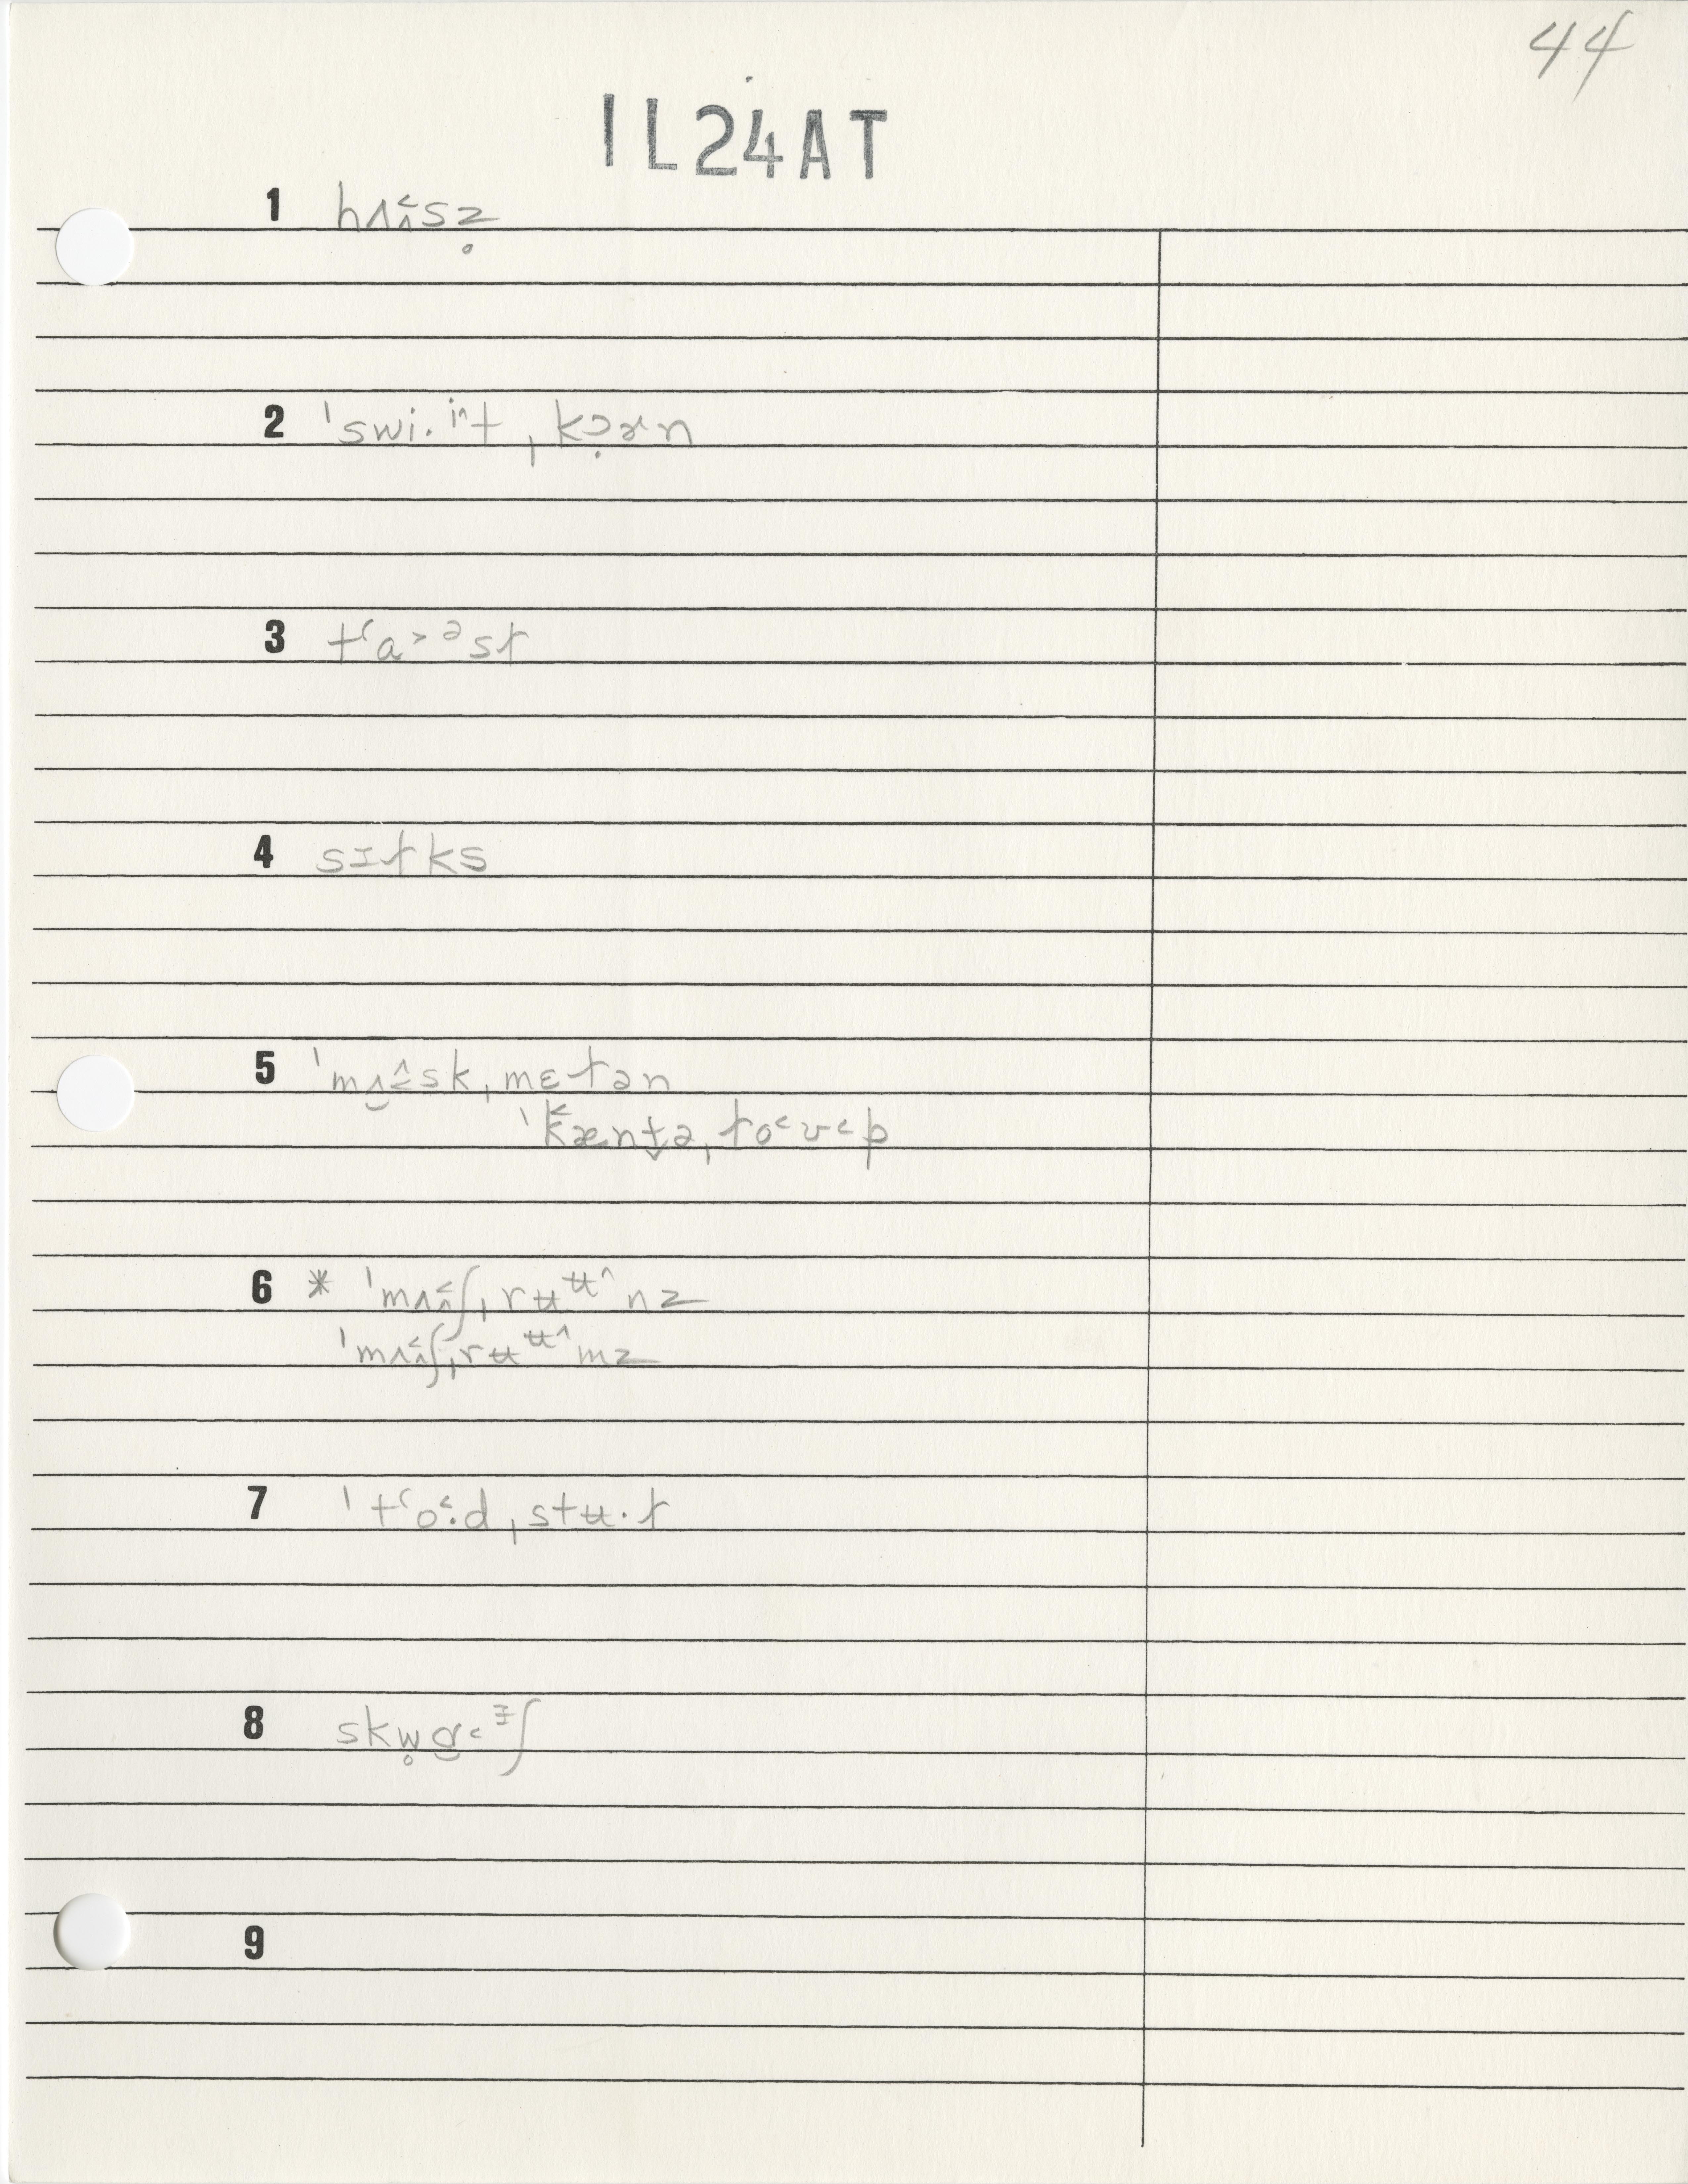 44
1L24AT
1 hʌʌ̭˂sz̥
2 ˈswi·ⁱ˄t ˌkɔ̣ɚn
3 tʻa˃ᵊsɫ
4 sɪɫks
5 ˈmʌ̯ɪ̂sk ˌmɛɫən
ˈkæntə ˌɫo˂ʊ˂p
6 * ˈmʌʌ̭˂ʃ ˌrʉᵾ˄nz
ˈmʌʌ̭˂ʃ ˌrʉᵾ˄mz
7 ˈtʻo˂·d ˌstʉ·ɫ
8 skw̥ɑ˂ᶤʃ
9